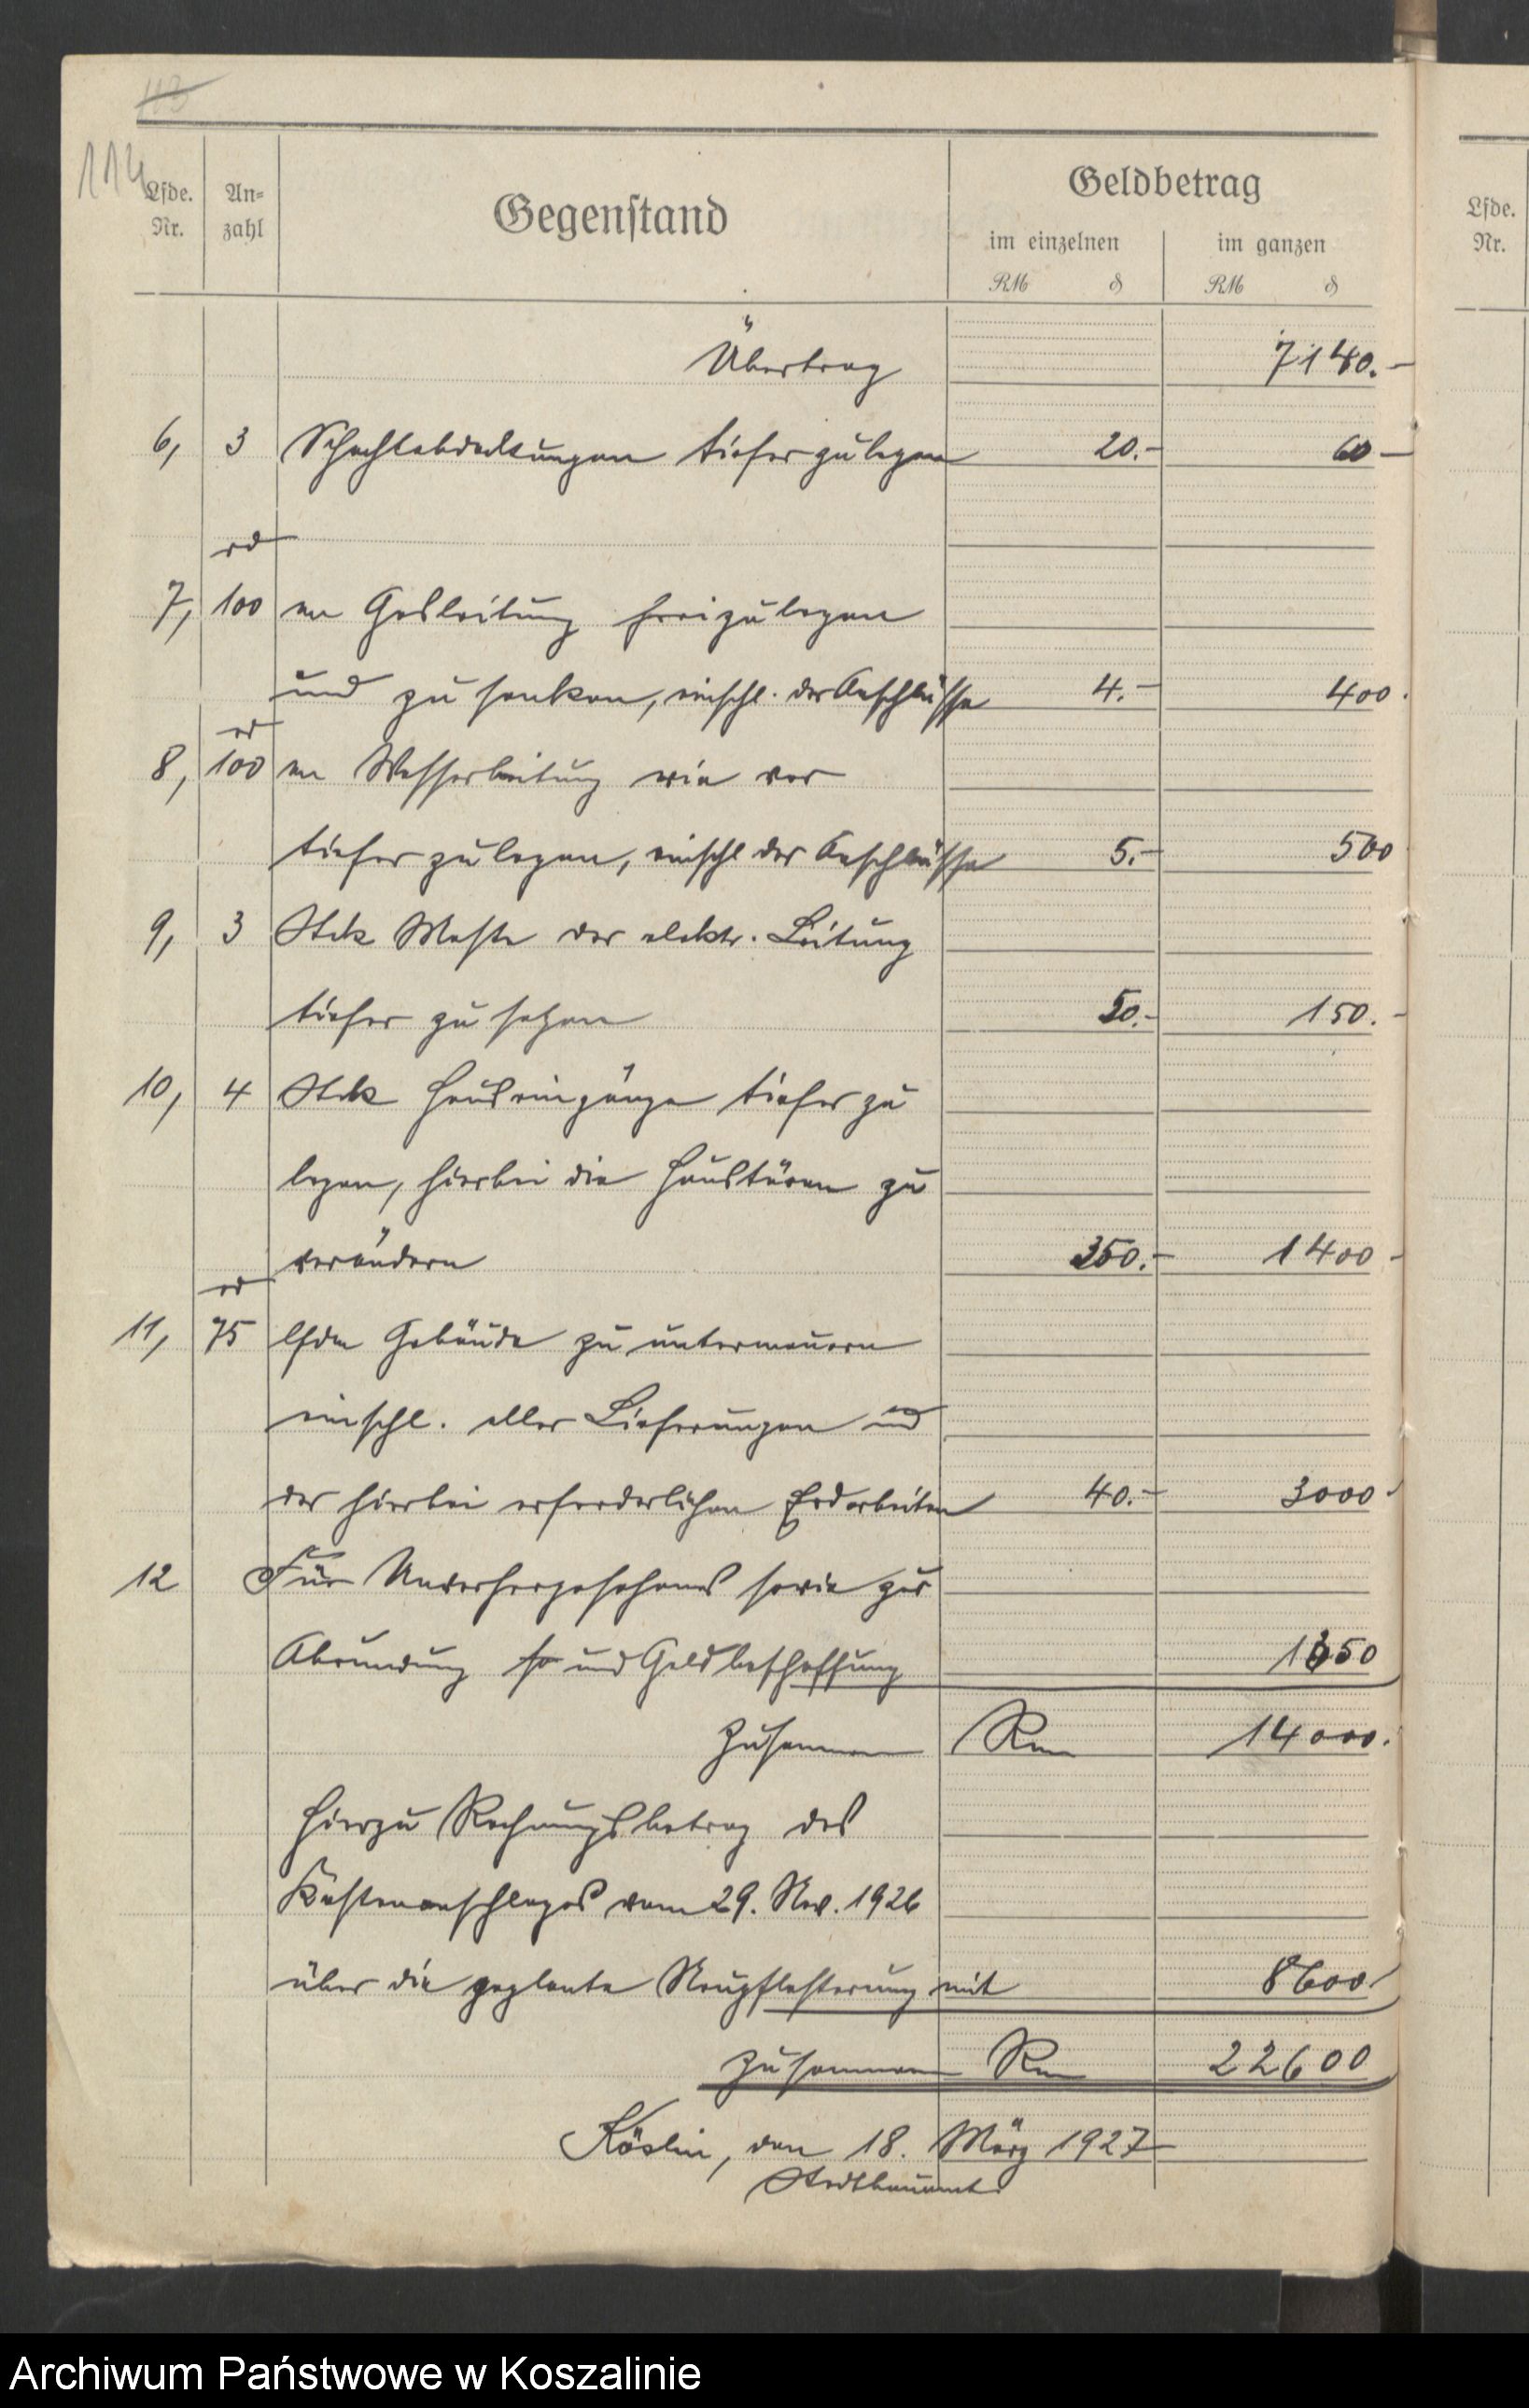 113
114
Lfde. Nr.
An-zahl
Gegenstand
Geldbetrag
im einzelnen
im ganzen
RM ₰
RM ₰
Lfde. Nr.
Übertrag 7140.-
6, 3 Schachtabdeckungen tiefer zu legen 20.- 60 -
rd
7, 100 m Gasleitung freizulegen
und zu senken, einschl. der Anschlüsse 4.- 400.
rd
8, 100 m Wasserleitung wie vor
tiefer zu legen, einschl der Anschlüsse 5.- 500
9, 3 Stck Maste der elektr. Leitung
tiefer zu setzen 50.- 150.-
10, 4 Stck Hauseingänge tiefer zu
legen, hierbei die Haustüren zu
verändern 350.- 1400 -
rd
11, 75 lfdm Gebäude zu untermauern
einschl. aller Lieferungen und
der hierbei erforderlichen Erdarbeiten 40.- 3000.
12 Für Unvorhergesehenes sowie zur
Abrundung und Geldbeschaffung 1350
Zusammen Rm 14000.
Hierzu Rechnungsbetrag des
Kostenanschlages vom 29. Nov. 1926
über die geplante Neupflasterung mit 8600.
Zusammen Rm 22600
Köslin, den 18. März 1927
Stadtbauamt.
Archiwum Państwowe w Koszalinie